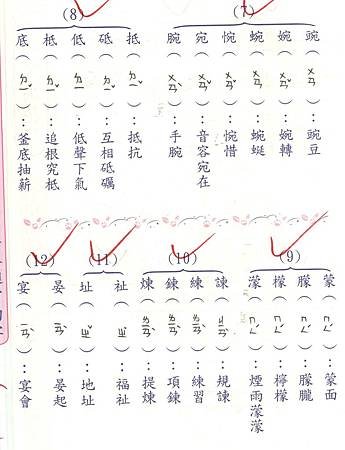 (7)
豌(ㄨㄢ):豌豆
婉(ㄨㄢˇ):婉轉
蜿(ㄨㄢ):蜿蜒
惋(ㄨㄢˇ):惋惜
宛(ㄨㄢˇ):音容宛在
腕(ㄨㄢˋ):手腕
(8)
抵(ㄉㄧˇ):抵抗
砥(ㄉㄧˇ):互相砥礪
低(ㄉㄧ):低聲下氣
柢(ㄉㄧˇ):追根究柢
底(ㄉㄧˇ):釜底抽薪
(9)
蒙(ㄇㄥˊ):蒙面
朦(ㄇㄥˊ):朦朧
檬(ㄇㄥˊ):檸檬
濛(ㄇㄥˊ):煙雨濛濛
(10)
諫(ㄐㄧㄢˋ):規諫
練(ㄌㄧㄢˋ):練習
鍊(ㄌㄧㄢˋ):項鍊
煉(ㄌㄧㄢˋ):提煉
(11)
祉(ㄓˇ):福祉
址(ㄓˇ):地址
(12)
晏(ㄧㄢˋ):晏起
宴(ㄧㄢˋ):宴會